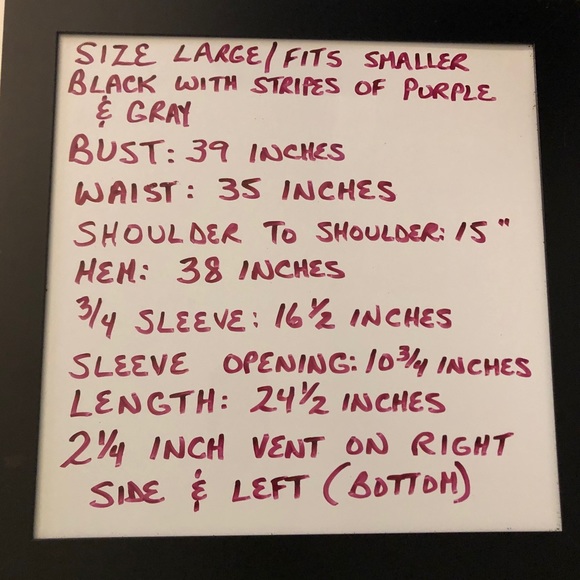 SIZE LARGE/FITS SMALLER
BLACK WITH STRIPES OF PURPLE
& GRAY
BUST: 39 INCHES
WAIST: 35 INCHES
SHOULDER TO SHOULDER: 15"
HEM: 38 INCHES
3/4 SLEEVE: 16 1/2 INCHES
SLEEVE OPENING: 10 3/4 INCHES
LENGTH: 24 1/2 INCHES
2 1/4 INCH VENT ON RIGHT
SIDE & LEFT (BOTTOM)